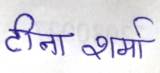 टीना शर्मा